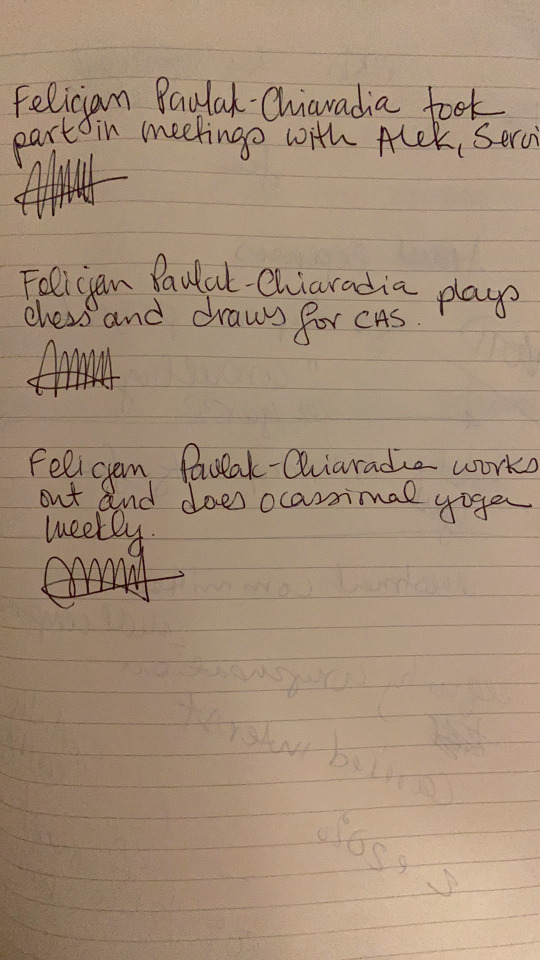 Felicjan Pavlak-Chiaradia took
part in meetings with Alek, Servi
Felicjan Pavlak-Chiaradia plays
chess and draws for CAS.
Felicjan Pavlak-Chiaradia works
out and does ocassional yoga
weekly.